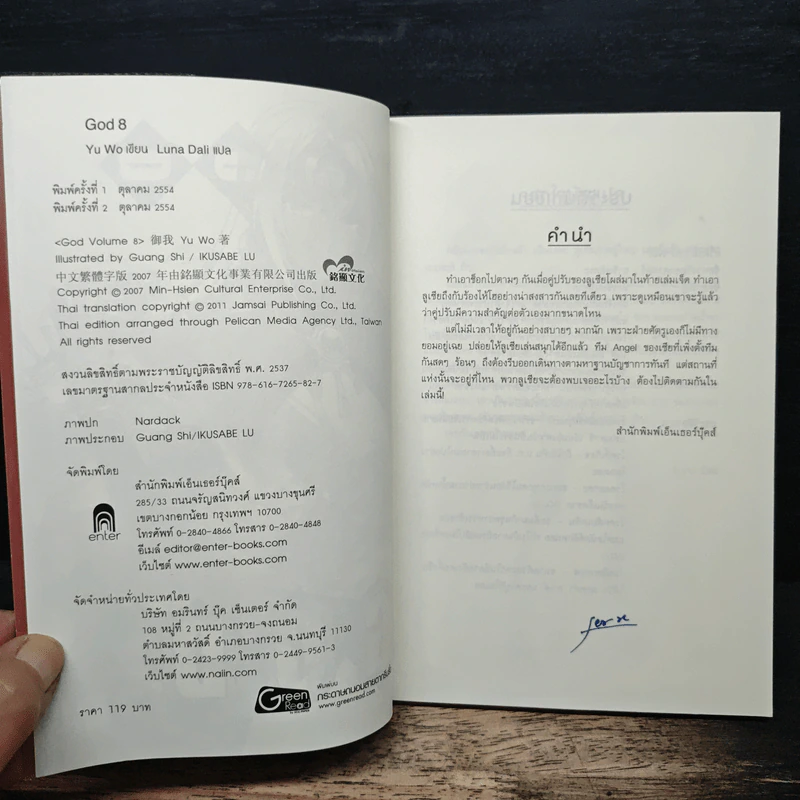 God 8
Yu Wo เขียน Luna Dali แปล
พิมพ์ครั้งที่ 1 ตุลาคม 2554
พิมพ์ครั้งที่ 2 ตุลาคม 2554
<God Volume 8> 御我 Yu Wo 著
Illustrated by Guang Shi / IKUSABE LU
中文繁體字版 2007 年由銘顯文化事業有限公司出版 銘顯文化
Copyright © 2007 Min-Hsien Cultural Enterprise Co., Ltd.
Thai translation copyright © 2011 Jamsai Publishing Co., Ltd.
Thai edition arranged through Pelican Media Agency Ltd., Taiwan
All rights reserved
สงวนลิขสิทธิ์ตามพระราชบัญญัติลิขสิทธิ์ พ.ศ. 2537
เลขมาตรฐานสากลประจำหนังสือ ISBN 978-616-7265-82-7
ภาพปก Nardack
ภาพประกอบ Guang Shi/IKUSABE LU
จัดพิมพ์โดย
enter
สำนักพิมพ์เอ็นเธอร์บุ๊คส์
285/33 ถนนจรัญสนิทวงศ์ แขวงบางขุนศรี
เขตบางกอกน้อย กรุงเทพฯ 10700
โทรศัพท์ 0-2840-4866 โทรสาร 0-2840-4848
อีเมล์ editor@enter-books.com
เว็บไซต์ www.enter-books.com
จัดจำหน่ายทั่วประเทศโดย
บริษัท อมรินทร์ บุ๊ค เซ็นเตอร์ จำกัด
108 หมู่ที่ 2 ถนนบางกรวย-จงถนอม
ตำบลมหาสวัสดิ์ อำเภอบางกรวย จ.นนทบุรี 11130
โทรศัพท์ 0-2423-9999 โทรสาร 0-2449-9561-3
เว็บไซต์ www.naiin.com
Green Read
พิมพ์บน
กระดาษถนอมสายตากรีนรี้ด
www.greenread.com
ราคา 119 บาท
คำนำ
ทำเอาช็อกไปตามๆ กันเมื่อคู่ปรับของลูเซียโผล่มาในท้ายเล่มเจ็ด ทำเอา
ลูเซียถึงกับร้องไห้โฮอย่างน่าสงสารกันเลยทีเดียว เพราะดูเหมือนเขาจะรู้แล้ว
ว่าคู่ปรับมีความสำคัญต่อตัวเองมากขนาดไหน
แต่ไม่มีเวลาให้อยู่กันอย่างสบายๆ มากนัก เพราะฝ่ายศัตรูเองก็ไม่มีทาง
ยอมอยู่เฉย ปล่อยให้ลูเซียเล่นสนุกได้อีกแล้ว ทีม Angel ของเซียที่เพิ่งตั้งทีม
กันสดๆ ร้อนๆ ถึงต้องรีบออกเดินทางตามหาฐานบัญชาการทันที แต่สถานที่
แห่งนั้นจะอยู่ที่ไหน พวกลูเซียจะต้องพบเจออะไรบ้าง ต้องไปติดตามกันใน
เล่มนี้!
สำนักพิมพ์เอ็นเธอร์บุ๊คส์